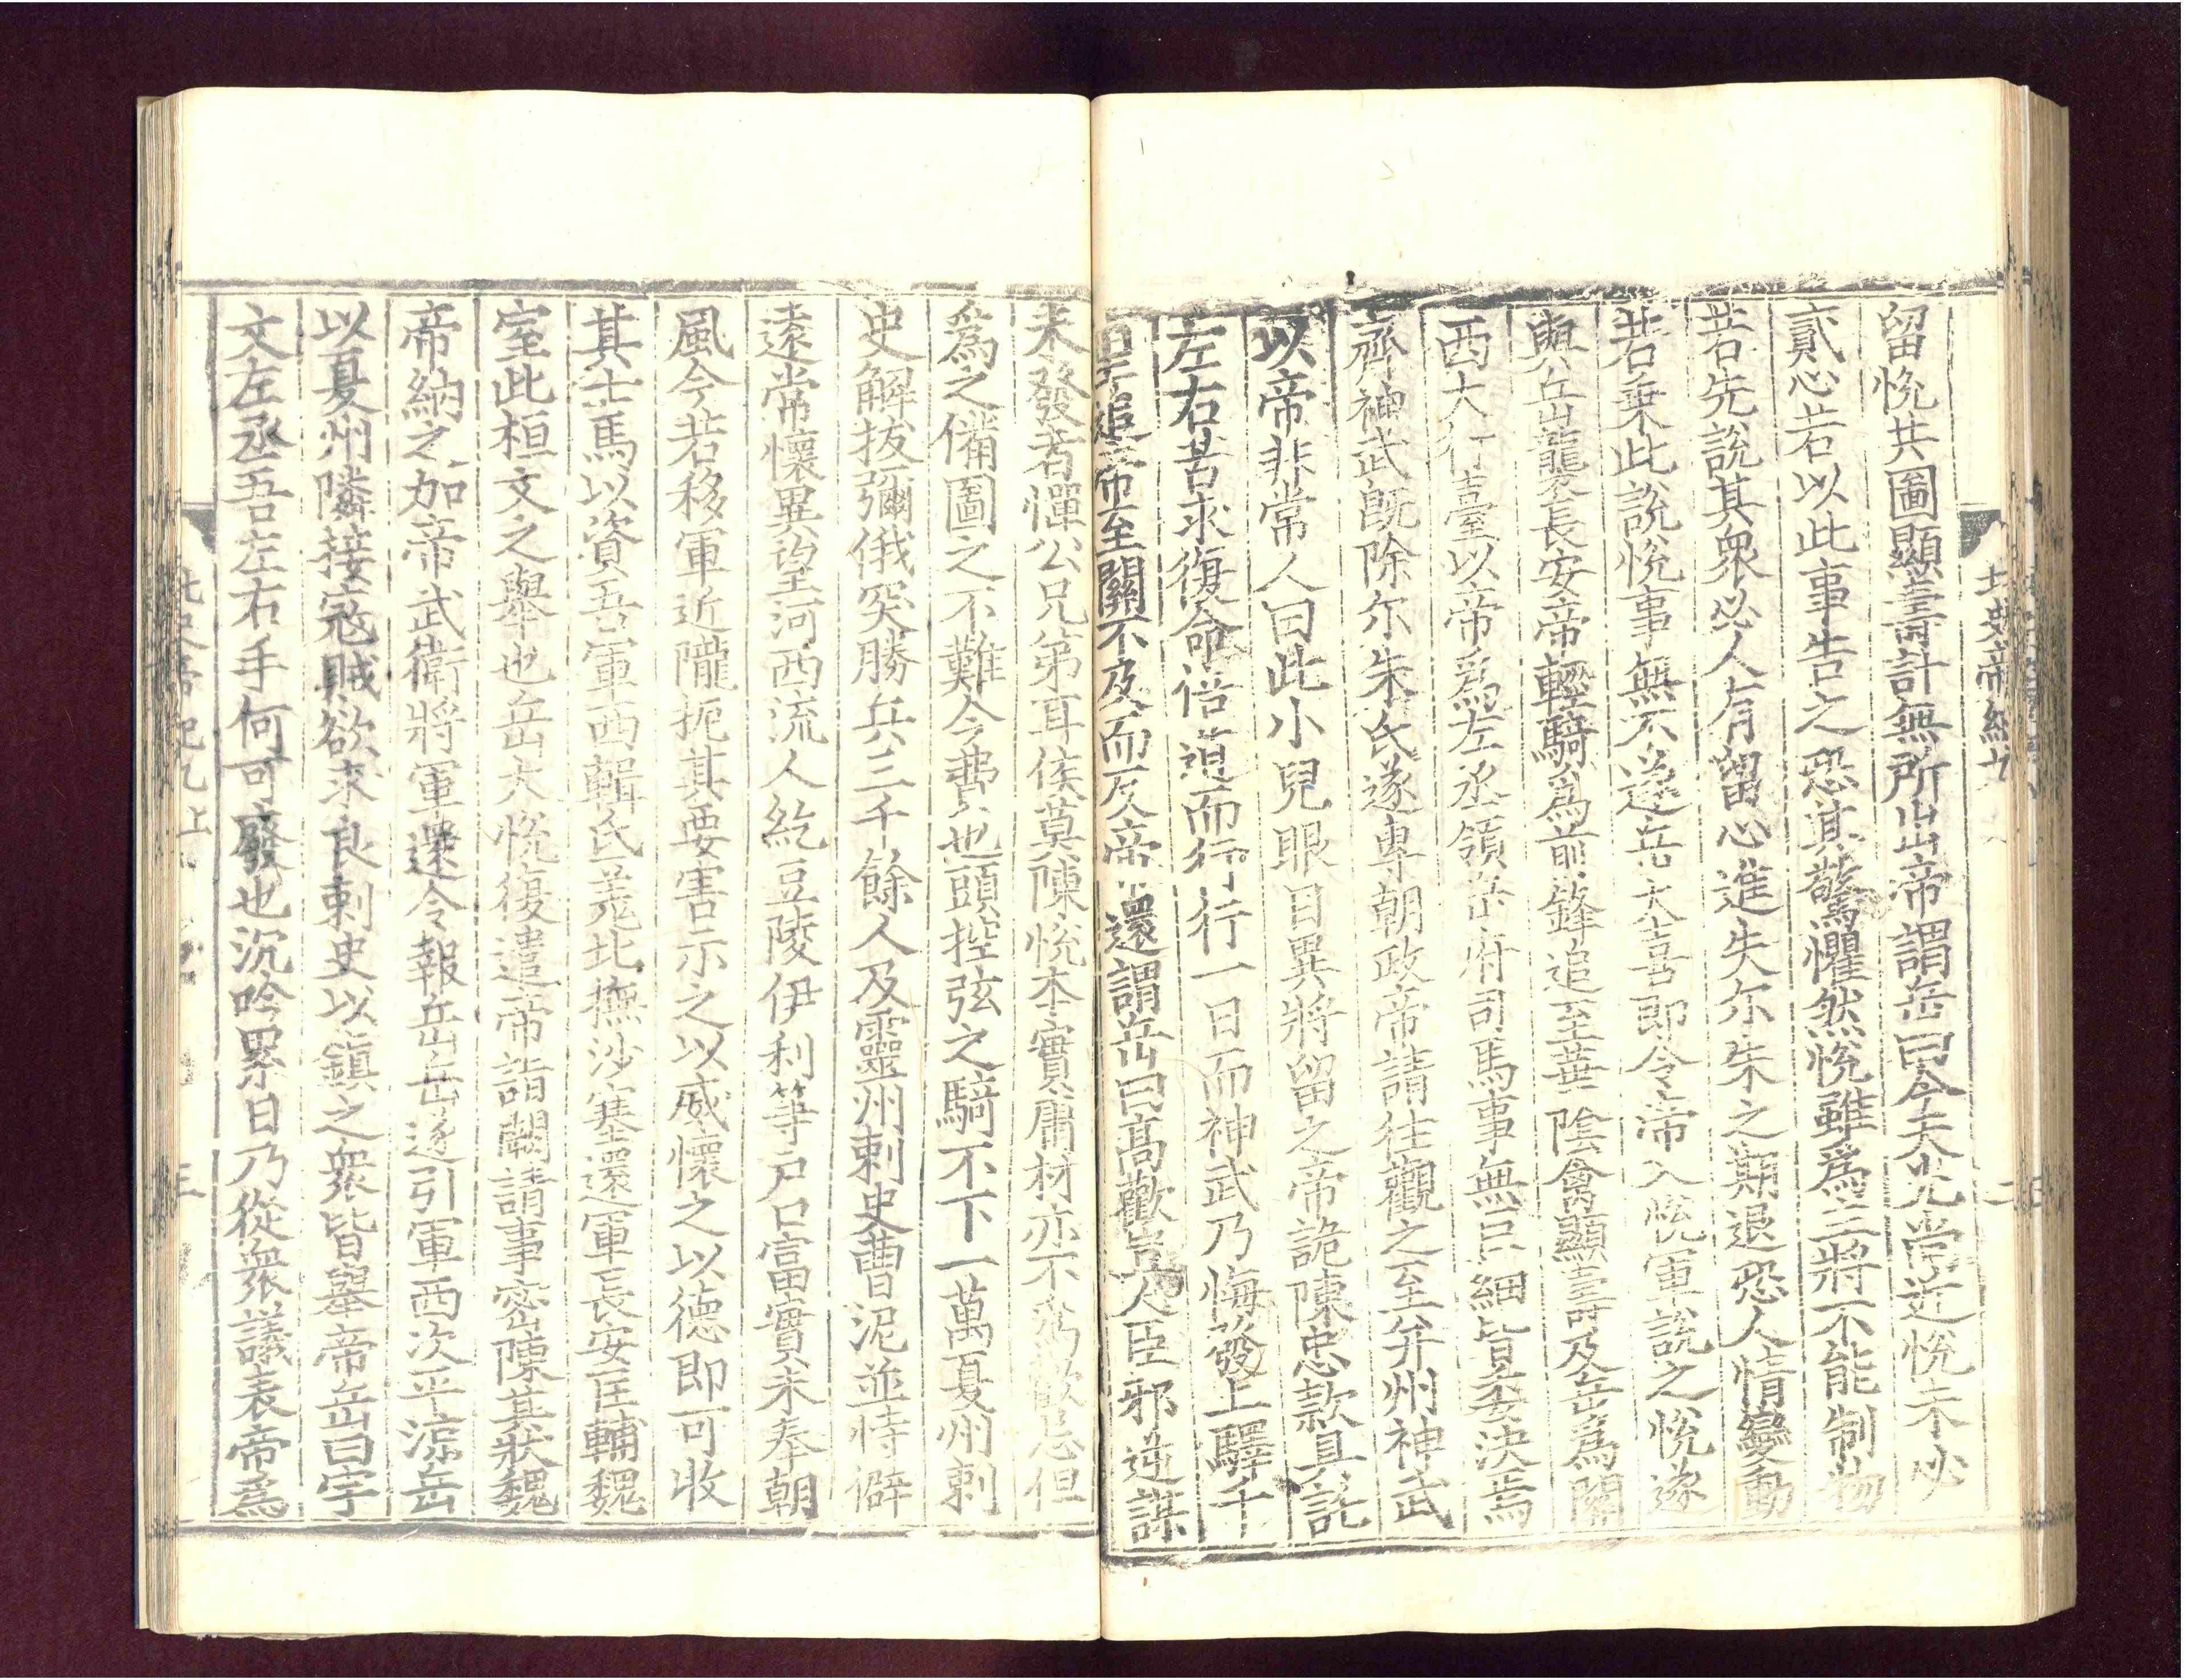 北史帝紀九
留悅共圖顯壽計無所出帝謂岳曰今天光尚近悅未必
貳心若以此事告之恐其驚懼然悅雖爲主將不能制物
若先說其衆必人有留心進失尒朱之期退恐人情變動
若乘此說悅事無不遂岳大喜即令帝入悅軍說之悅遂
與岳襲長安帝輕騎爲前鋒追至華陰禽顯壽及岳爲關
西大行臺以帝爲左丞領岳府司馬事無巨細皆委決焉
齊神武既除尒朱氏遂專朝政帝請往觀之至并州神武
以帝非常人曰此小兒眼目異將留之帝詭陳忠款具託
左右苦求復命倍道而行行一日而神武乃悔發上驛千
里追帝至關不及而反帝還謂岳曰高歡豈人臣邪逆謀
未發者憚公兄弟耳侯莫陳悅本實庸材亦不爲歡忌但
爲之備圖之不難今費也頭控弦之騎不下一萬夏州刺
史解拔彌俄突勝兵三千餘人及靈州刺史曹泥並恃僻
遠常懷異望河西流人紇豆陵伊利等戶口富實未奉朝
風今若移軍近隴扼其要害示之以威懷之以德即可收
其士馬以資吾軍西輯氐羌北撫沙塞還軍長安匡輔魏
室此桓文之舉也岳大悅復遣帝詣闕請事密陳其狀魏
帝納之加帝武衛將軍還令報岳岳遂引軍西次平涼岳
以夏州隣接寇賊欲求良刺史以鎮之衆皆舉帝岳曰宇
文左丞吾左右手何可廢也沉吟累日乃從衆議表帝爲
北史帝紀九上 三